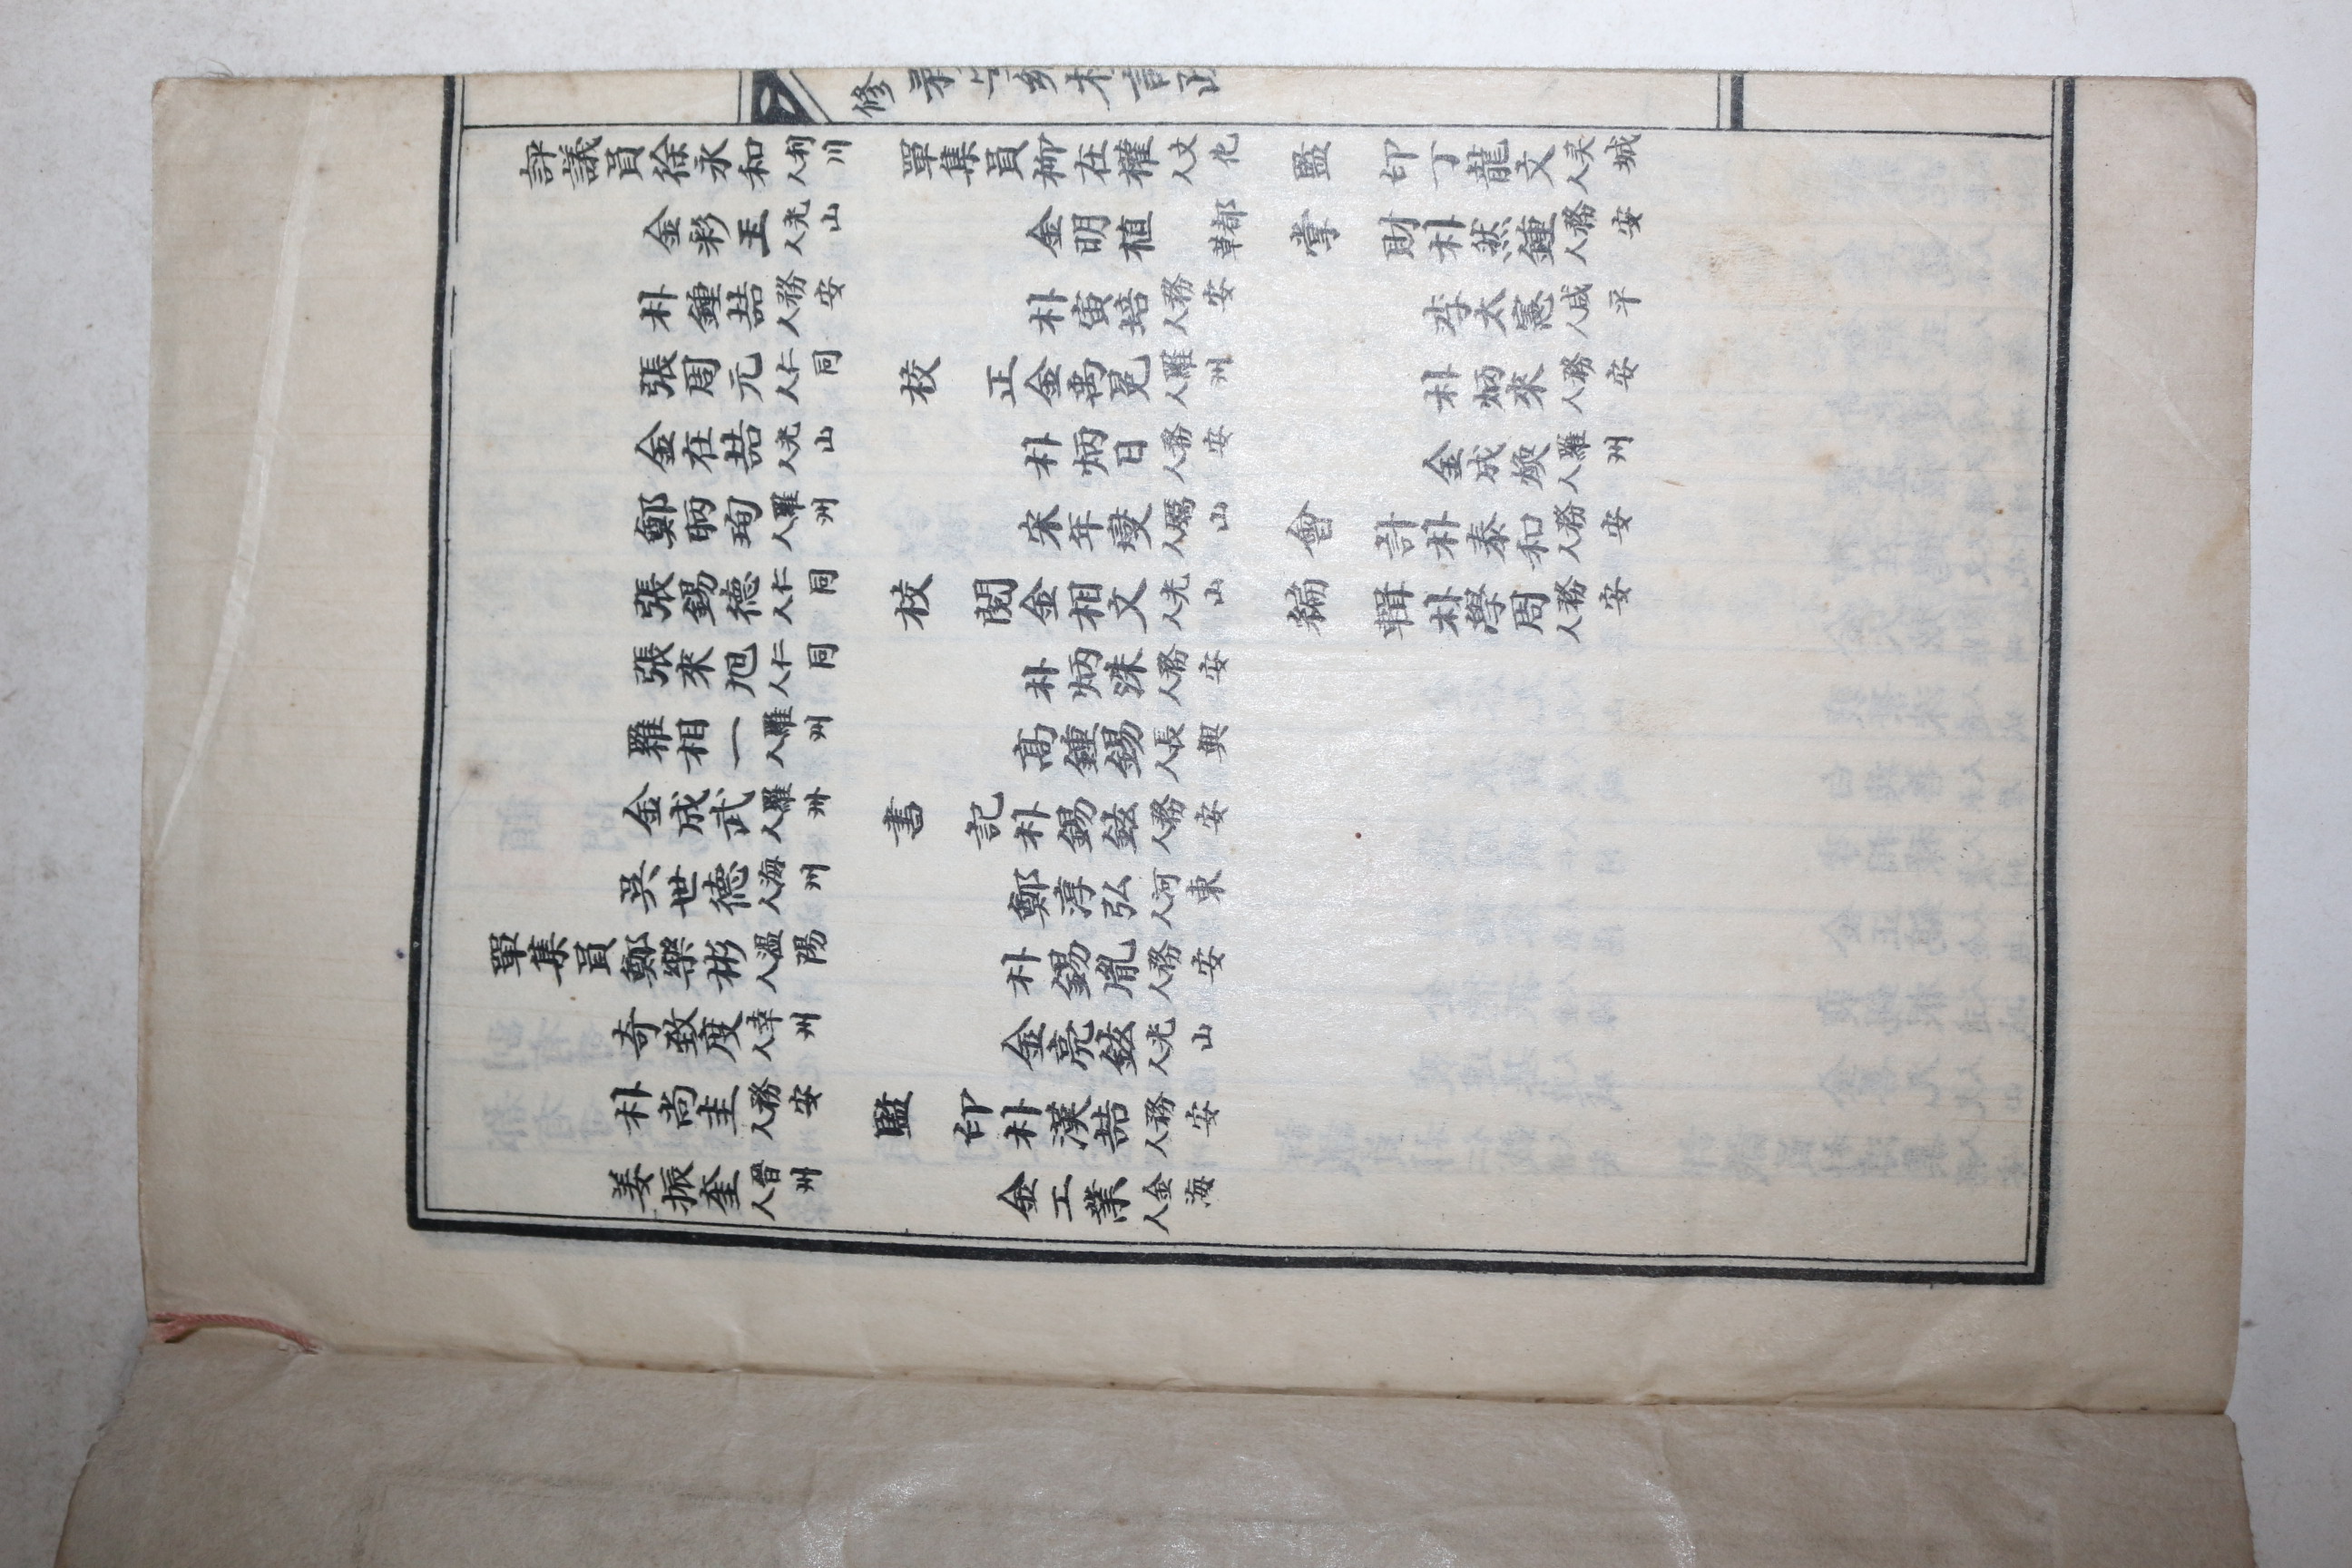 評議員徐永和利川人
金彩玉光山人
朴鍾喆務安人
張周元仁同人
金在喆光山人
鄭昞珣羅州人
張錫德仁同人
張來旭仁同人
羅相一羅州人
金成武羅州人
吳世德海州人
單集員鄭樂彬溫陽人
奇致度幸州人
朴尚圭務安人
姜振奎晉州人
單集員柳在權文化人
金明植都草
朴寅培務安人
校正金禹冕羅州人
朴炳日務安人
宋年燮礪山人
校閱金相文光山人
朴炳洙務安人
高鍾錫長興人
書記朴錫鉉務安人
鄭淳弘河東人
朴錫胤務安人
金亮鉉光山人
監印朴漢喆務安人
金工業金海人
監印丁龍文灵城人
掌財朴然鍾務安人
李太憲咸平人
朴炳來務安人
金成煥羅州人
會計朴泰和務安人
編輯朴學周務安人
修